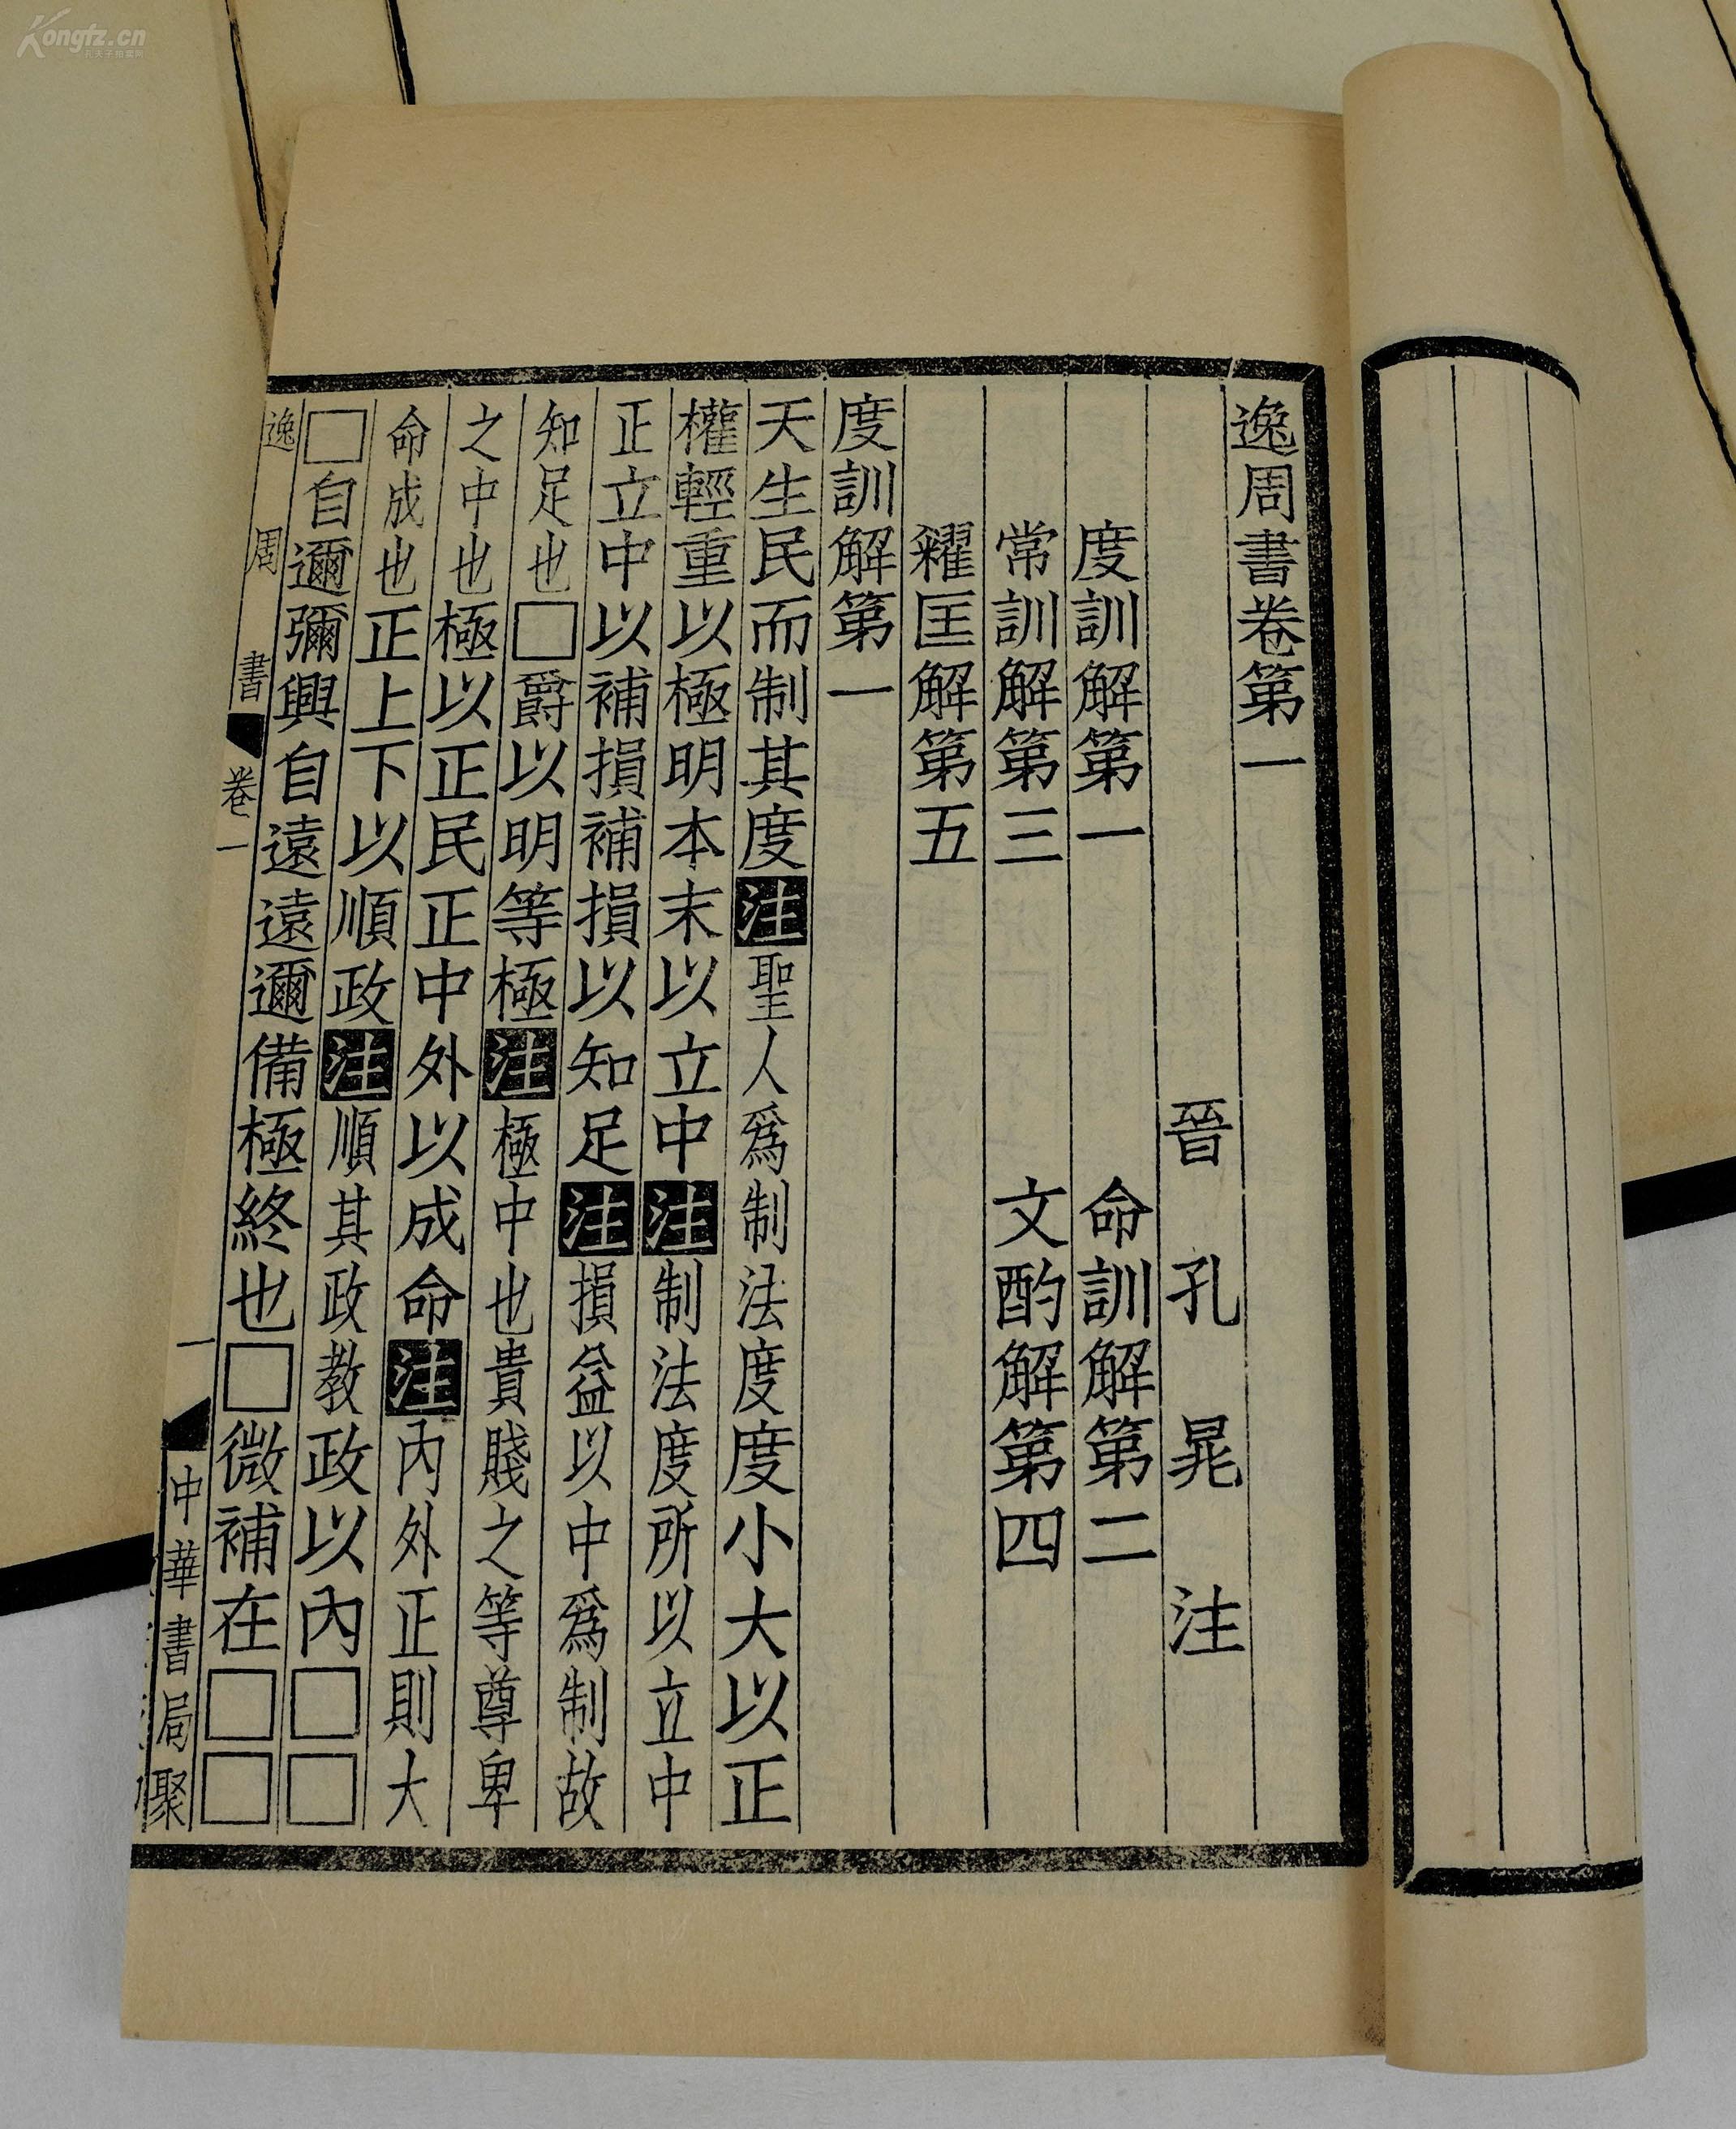 逸周書卷第一
晉 孔 晁 注
度訓解第一 命訓解第二
常訓解第三 文酌解第四
糴匡解第五
度訓解第一
天生民而制其度注聖人爲制法度度小大以正
權輕重以極明本末以立中注制法度所以立中
正立中以補損補損以知足注損益以中爲制故
知足也□爵以明等極注極中也貴賤之等尊卑
之中也極以正民正中外以成命注內外正則大
命成也正上下以順政注順其政教政以內□□
□自邇彌興自遠遠邇備極終也□微補在□□
逸周書 卷一 一 中華書局聚
Kongfz.cn